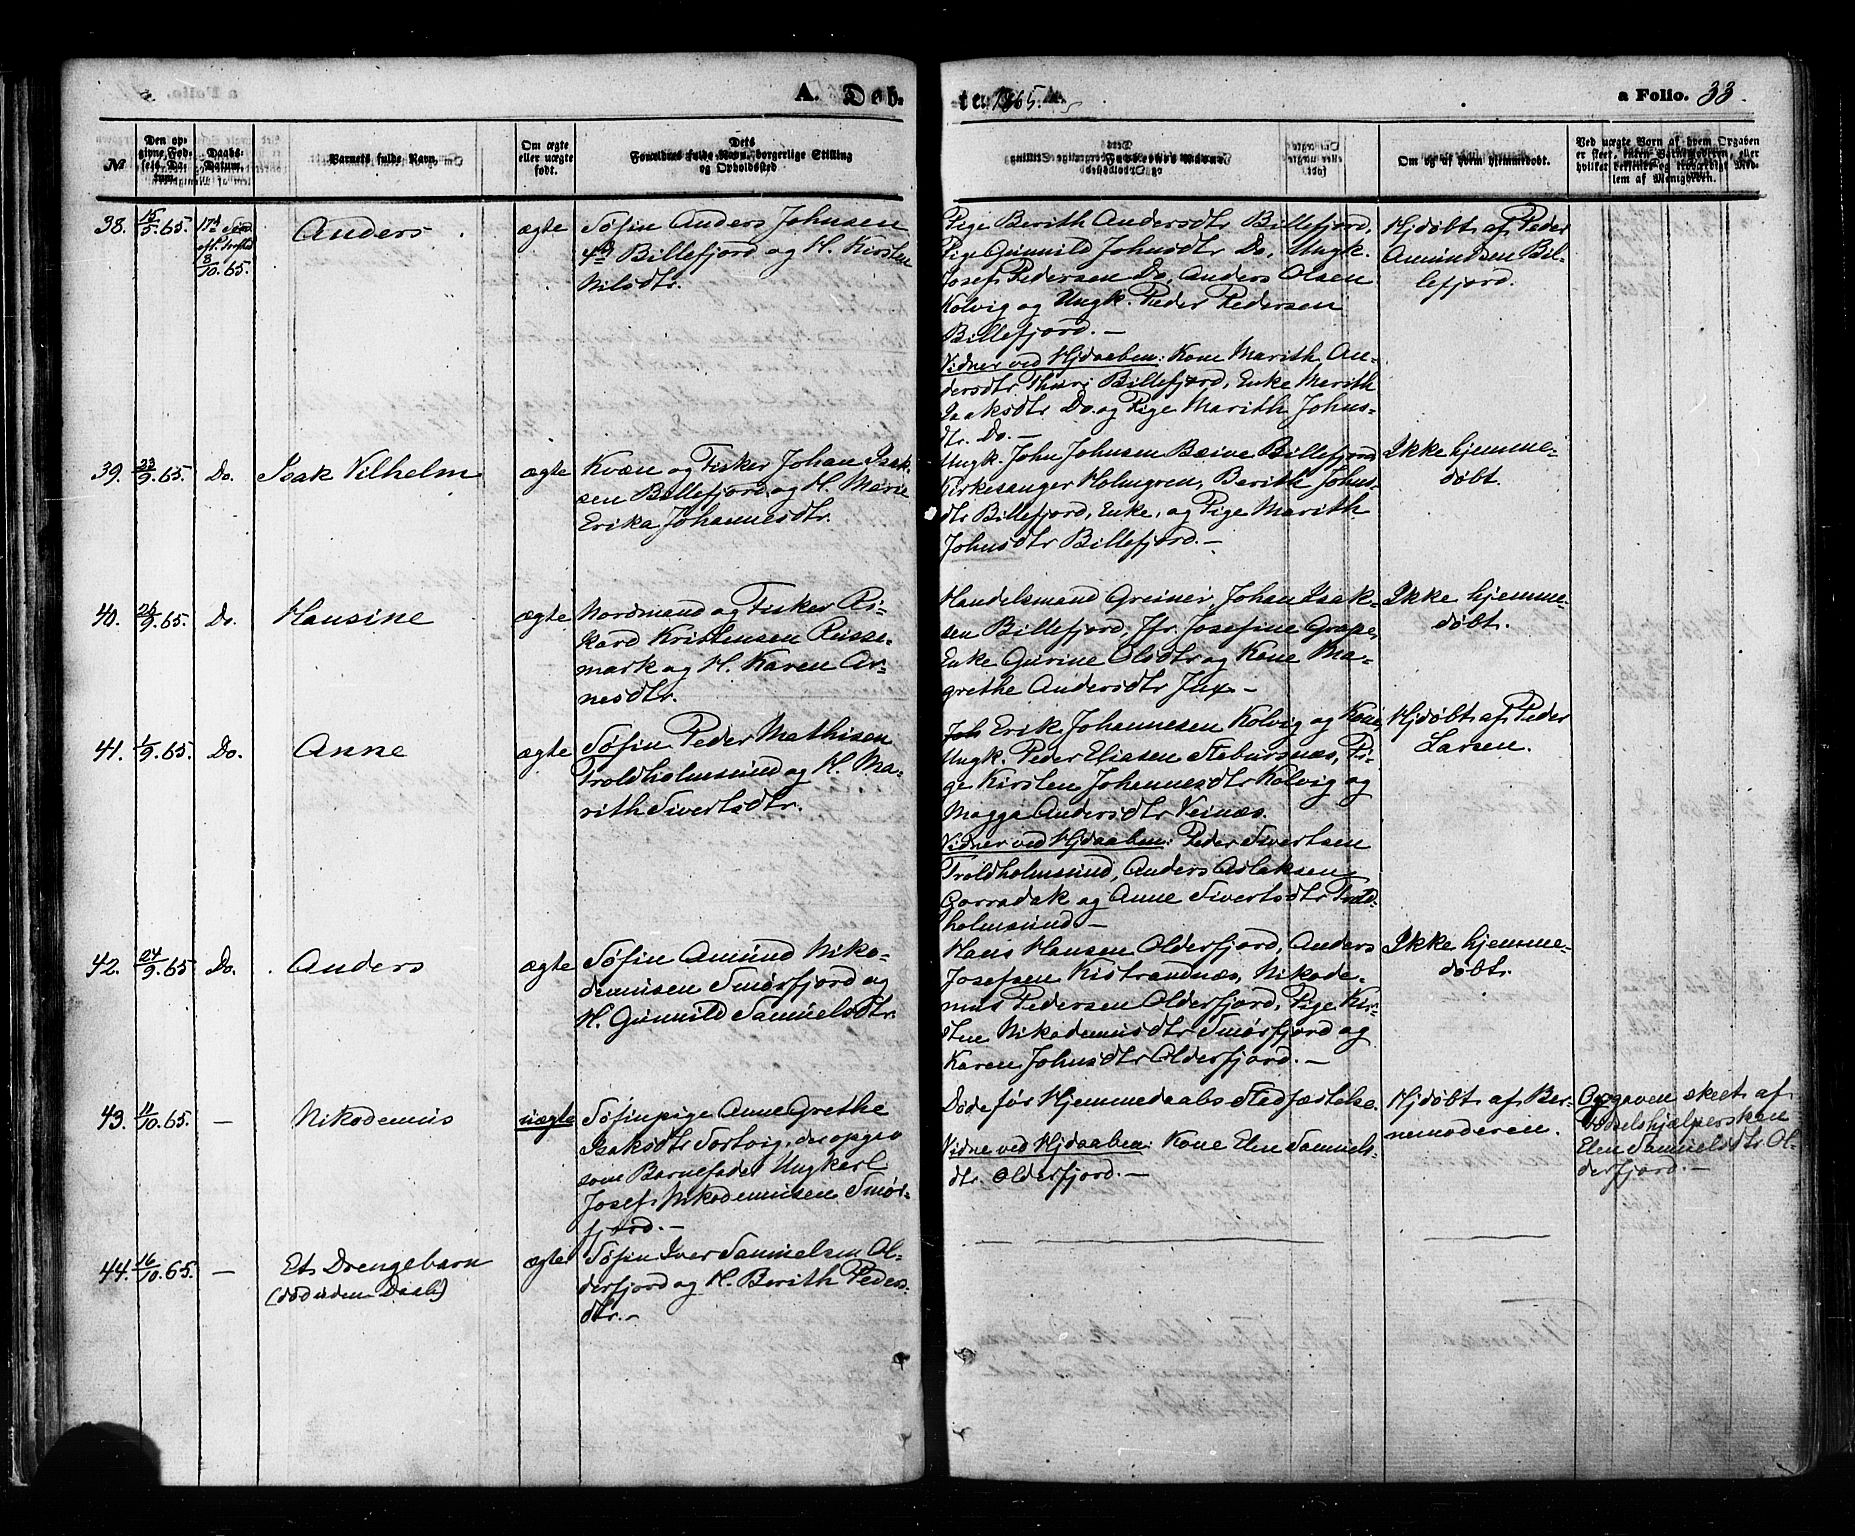 A. Døb-
te. 1865.
a Folio. 33.
№
Den op-
givne Fød-
sels-Da-
tum.
Daabs-
Datum.
Barnets fulde Navn.
Om ægte
eller uægte
født.
Dets
Forældres fulde Navn, borgerlige Stilling
og Opholdssted
Faddernes Navne
Om og af hvem hjemmedøbt.
Ved uægte Børn af hvem Opgaven
er skeet, enten Barnefaderen, eller
hvilket bekjendt og troværdigt Med-
lem af Menigheden.
38.
15/5 65.
17d Sønd.
eft. Trefold.
8/10. 65.
Anders
ægte
Søfin Anders Johnsen
Billefjord og H. Kirsten
Nilsdtr.
Pige Berith Andersdtr Billefjord,
Pige Gunnild Johnsdtr Do, Ungk.
Josef Pedersen Do, Anders Olsen
Kolvig og Ungk. Peder Pedersen
Billefjord. —
Vidner ved Hjdaaben: Kone Marith An-
dersdtr Thuri Billefjord, Enke Marith
Isaksdtr Do. og Pige Marith Johns-
dtr. Do. —
Hjdøbt af Peder
Amundsen Bil-
lefjord.
39.
23/9 65.
Do.
Isak Vilhelm
ægte
Kvæn og Fisker Johan Isak-
sen Billefjord og H. Marie
Erika Johannesdtr.
Ungk. John Johnsen Bæive Billefjord
Kirkesanger Holmgren, Berith Johns-
dtr Billefjord, Enke, og Pige Marith
Johnsdtr Billefjord. —
Ikke hjemme-
døbt.
40.
26/9 65.
Do.
Hansine
ægte
Nordmand og Fisker Ri-
kard Kristensen Russe-
mark og H. Karen Ar-
nesdtr.
Handelsmand Greiner, Johan Isak-
sen Billefjord, Jfr. Josefine Grape,
Enke Gurine Olsdtr og Kone Ma-
grethe Andersdtr Jux —
Ikke hjemme-
døbt.
41.
1/9 65.
Do.
Anne
ægte
Søfin Peder Mathisen
Troldholmsund og H. Ma-
rith Sivertsdtr.
Erik Johannesen Kolvig og Kone,
Ungk. Peder Eliasen Stabursnæs, Pi-
ge Kirsten Johannesdtr Kolvig og
Magga Andersdtr Veinæs.
Vidner ved Hjdaaben: Peder Sivertsen
Troldholmsund, Anders Aslaksen
Gorradak og Anne Sivertsdtr Trold-
holmsund —
Hjdøbt af Peder
Larsen.
42.
24/9 65
Do.
Anders
ægte
Søfin Amund Niko-
demusen Smørfjord og
H. Gunnild Samuelsdtr.
Hans Hansen Olderfjord, Anders
Josefsen Kistrandnæs, Nikode-
mus Pedersen Olderfjord, Pige Kir-
stine Nikodemusdtr Smørfjord og
Karen Johnsdtr Olderfjord. —
Ikke hjemme-
døbt.
43.
11/10 65.
—
Nikodemus
uægte
Søfinpige Anne Grethe
Isaksdtr Sortvig, der opgav
som Barnefader Ungkarl
Josef Nikodemusen Smør-
fjord. —
Døde før Hjemmedaabs Stadfæstelse.
Vidne ved Hjdaaben: Kone Elen Samuels-
dtr. Olderfjord. —
Hjdøbt af Bar-
nemoderen.
Opgaven skeet af
Fødselshjælpersken
Elen Samuelsdtr Ol-
derfjord. —
44.
16/10 65.
—
Et Drengebarn
(død uden Daab)
ægte
Søfin Iver Samuelsen Ol-
derfjord og H. Berith Peders-
dtr. —